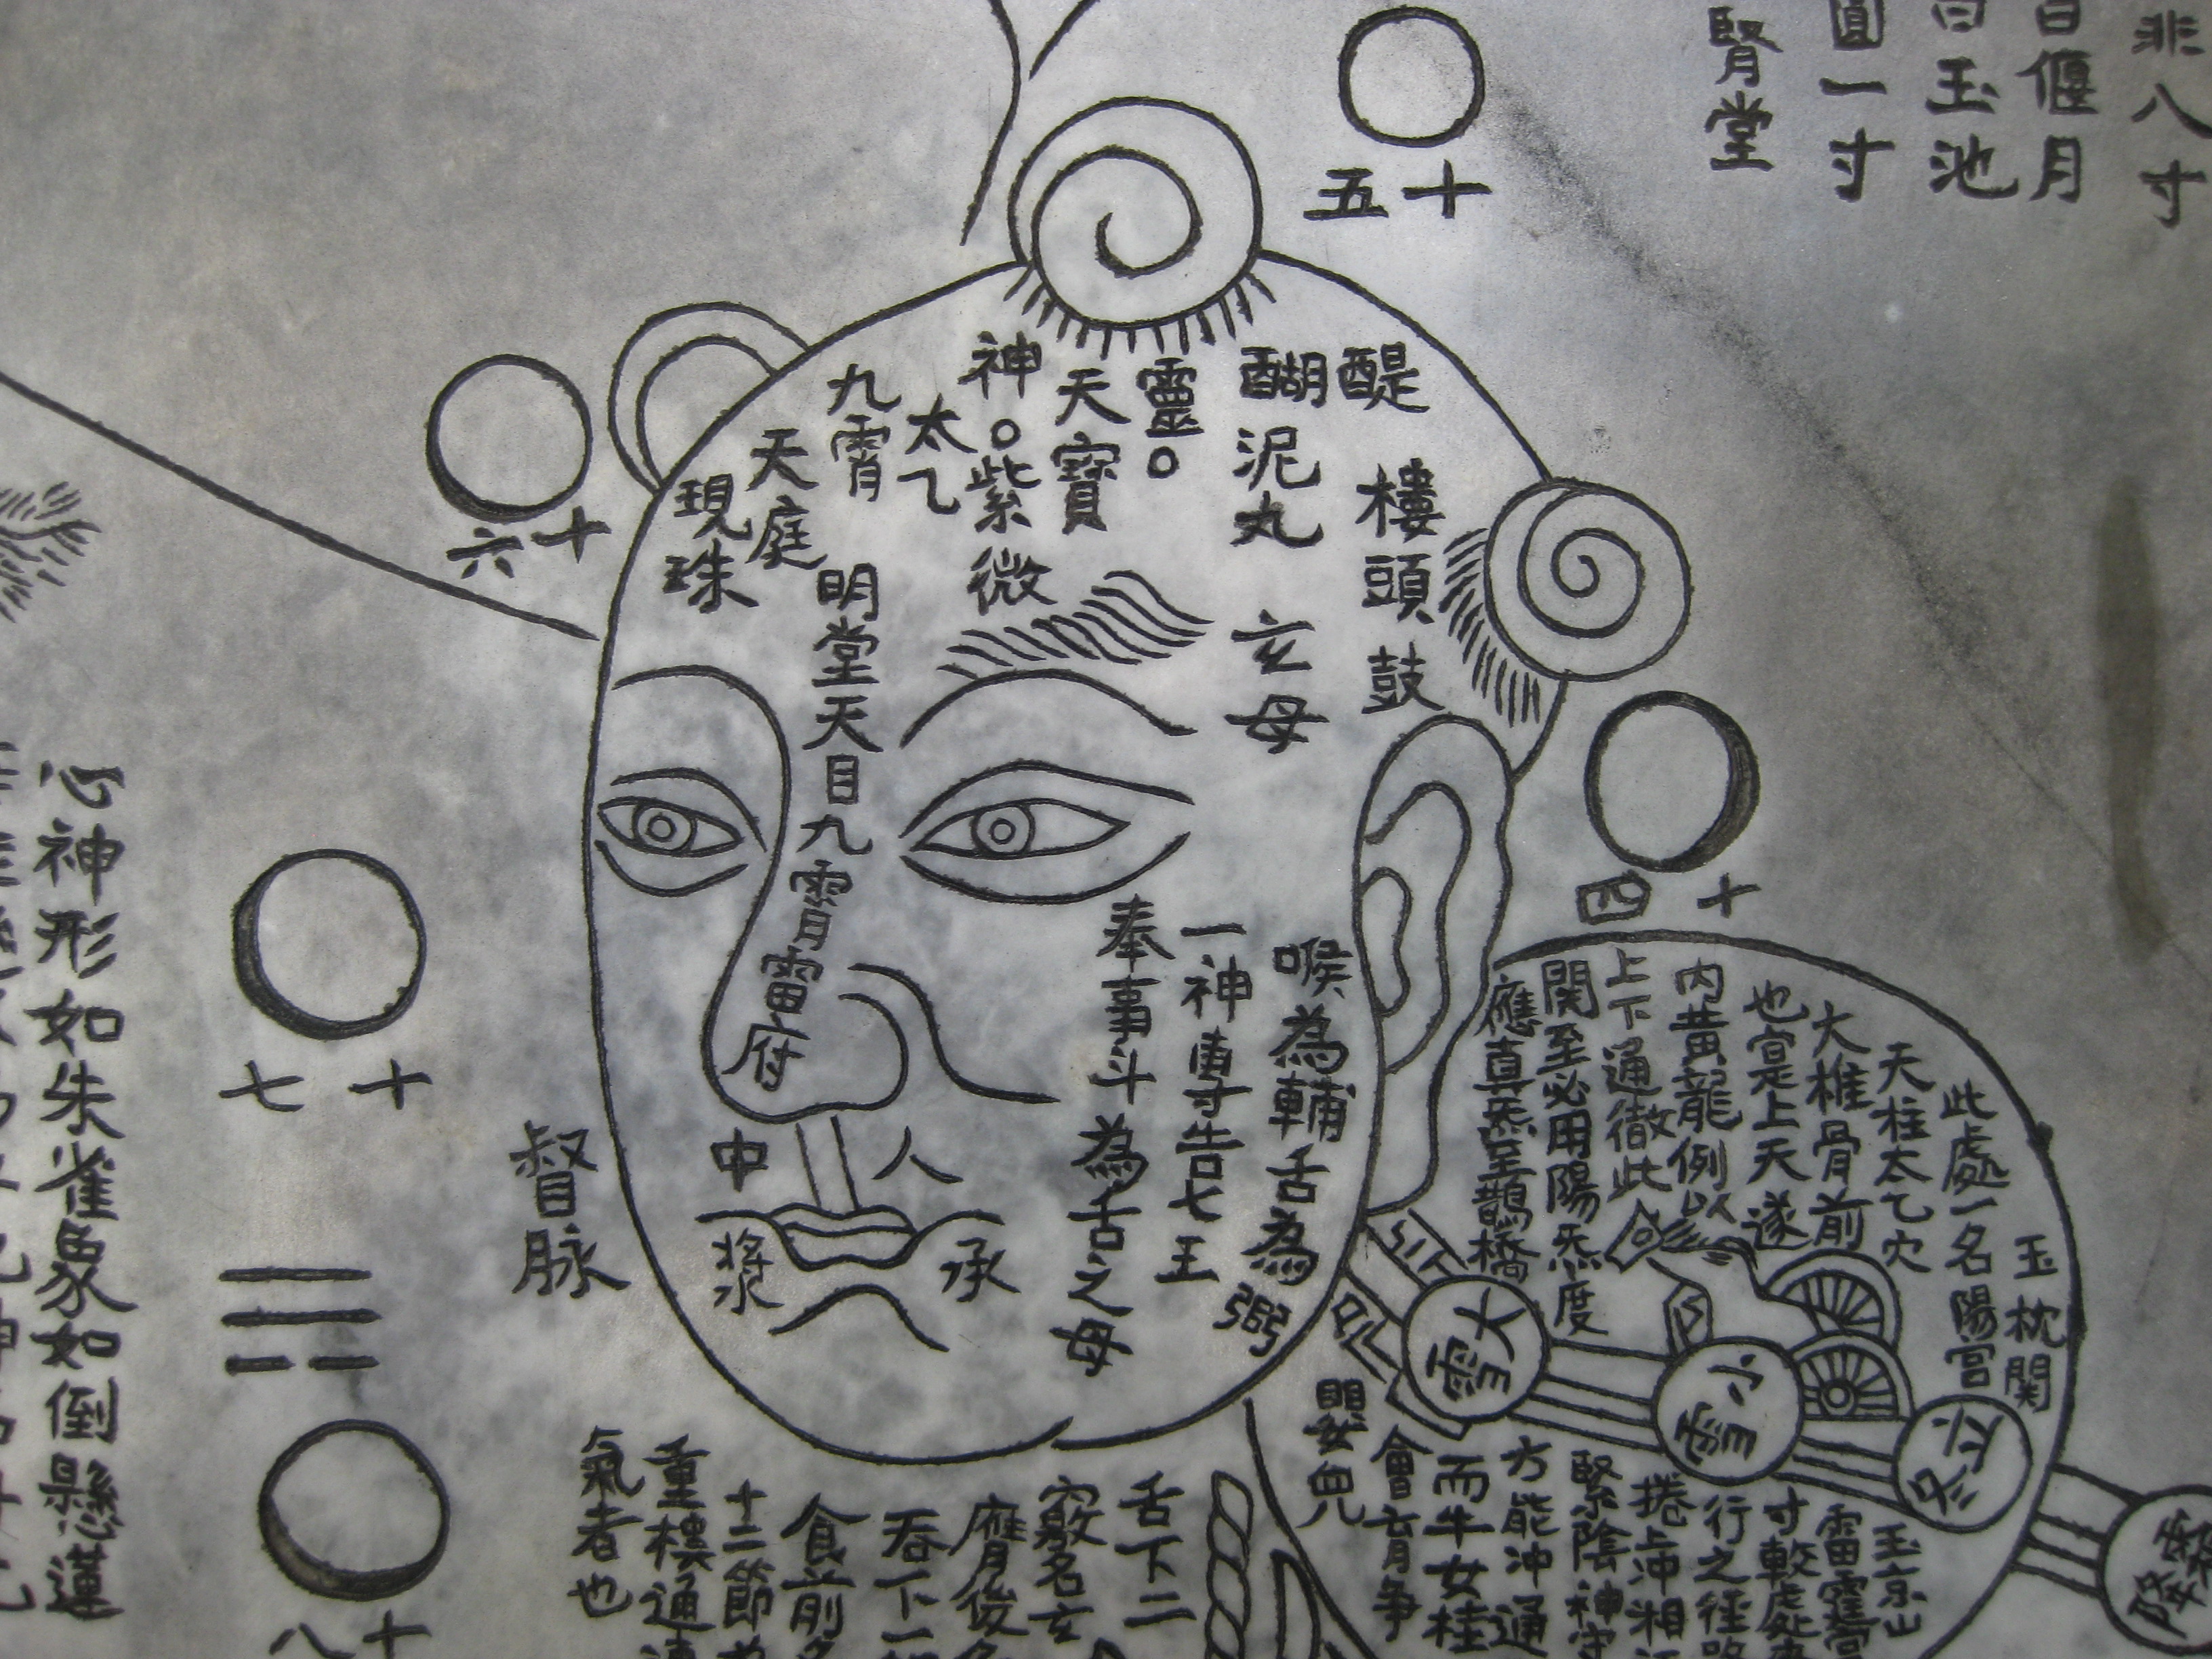 非八寸
白偃月
曰玉池
圓一寸
腎堂
十五
十四
十六
十七
十八
醍醐
泥丸
樓頭鼓
玄母
靈。
天寶
神。紫微
太乙
九霄
天庭
現珠
明堂天目九霄雷府
喉為輔舌為弼
一神專告七王
奉事斗為舌之母
人中
承漿
督脉
心神形如朱雀象如倒懸蓮
玉枕関
此處一名陽宮
天柱太乙穴
大椎骨前
也㝎上天遂
内黄龍例以
上下通徹此
関至必用陽炁度
應真炁至鵲橋
大鳴
小鳴
舌下二
竅名玄
膺後
吞下一
食前
十二節
重樓通
氣者也
嬰兒
會育爭
而牛女桂
方能冲通
緊陰神守
捲上冲湘
行之徑路
寸較處
雷霆宮
玉京山